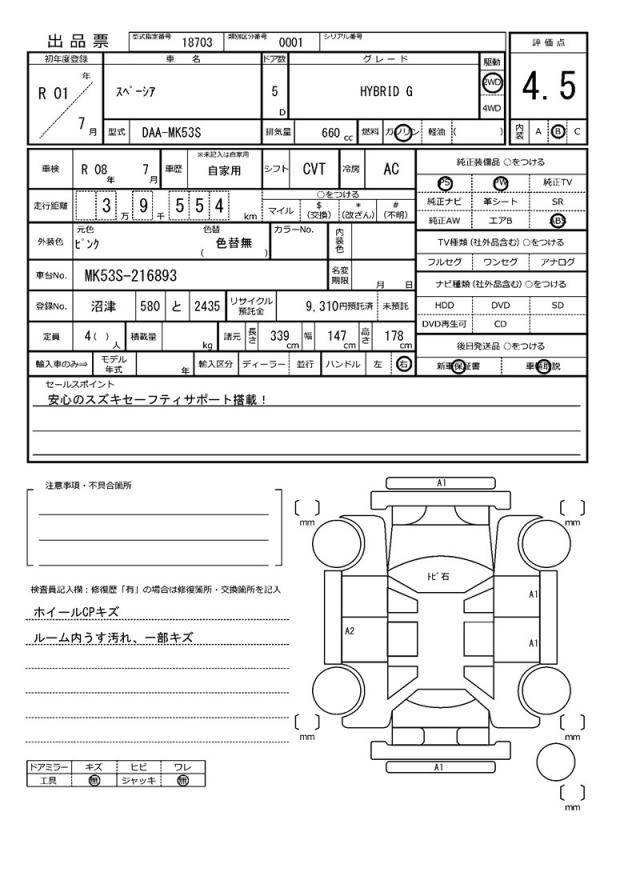 出品票 型式指定番号 18703 類別区分番号 0001 シリアル番号
評価点
4.5
初年度登録 車名 ドア数 グレード 駆動
R 01 年 7 月
スペーシア 5 D HYBRID G 2WD 4WD
型式 DAA-MK53S 排気量 660 cc 燃料 ガソリン 軽油 ( )
内装 A B C
車検 R 08 年 7 月 車歴 ※未記入は自家用 自家用 シフト CVT 冷房 AC
走行距離 3 万 9 千 5 5 4 km
○をつける
マイル $ (交換) * (改ざん) # (不明)
外装色 元色 ピンク 色替 ( 色替無 ) カラーNo. 内装色
車台No. MK53S-216893 名変期限 月 日
登録No. 沼津 580 と 2435 リサイクル預託金 9,310円預託済 未預託
定員 4( ) 人 積載量 kg 諸元 長さ 339 cm 幅 147 cm 高さ 178 cm
輸入車のみ⇒ モデル年式 年 輸入区分 ディーラー 並行 ハンドル 左 右
純正装備品 ○をつける
PS PW 純正TV
純正ナビ 革シート SR
純正AW エアB ABS
TV種類 (社外品含む) ○をつける
フルセグ ワンセグ アナログ
ナビ種類 (社外品含む) ○をつける
HDD DVD SD
DVD再生可 CD
後日発送品 ○をつける
新車保証書 車輌取説
セールスポイント
安心のスズキセーフティサポート搭載！
注意事項・不具合箇所
検査員記入欄：修復歴「有」の場合は修復箇所・交換箇所を記入
ホイールCPキズ
ルーム内うす汚れ、一部キズ
ドアミラー キズ ヒビ ワレ
工具 無 ジャッキ 無
A1
[ ] mm
[ ] mm
トビ石
A1
A2
A1
[ ] mm
[ ] mm
A1
[ ] mm